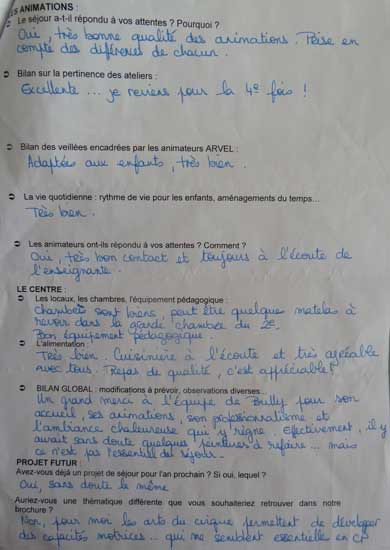 LES ANIMATIONS :
Le séjour a-t-il répondu à vos attentes ? Pourquoi ?
Oui, très bonne qualité des animations. Prise en
compte des différences de chacun.
Bilan sur la pertinence des ateliers :
Excellente ... je reviens pour la 4e fois !
Bilan des veillées encadrées par les animateurs ARVEL :
Adaptées aux enfants, très bien.
La vie quotidienne : rythme de vie pour les enfants, aménagements du temps...
Très bien.
Les animateurs ont-ils répondu à vos attentes ? Comment ?
Oui, très bon contact et toujours à l'écoute de
l'enseignante.
LE CENTRE :
Les locaux, les chambres, l'équipement pédagogique :
chambres sont biens, peut être quelques matelas à
revoir dans la grande chambre du 2e.
Bon équipement pédagogique.
L'alimentation :
Très bien. Cuisinière à l'écoute et très agréable
avec tous. Repas de qualité, c'est appréciable !
BILAN GLOBAL : modifications à prévoir, observations diverses...
Un grand merci à l'équipe de Bully pour son
accueil, ses animations, son professionnalisme et
l'ambiance chaleureuse qui y règne. Effectivement, il y
aurait sans doute quelques peintures à refaire ... mais
ce n'est pas l'essentiel du séjour.
PROJET FUTUR :
Avez-vous déjà un projet de séjour pour l'an prochain ? Si oui, lequel ?
Oui, sans doute le même
Auriez-vous une thématique différente que vous souhaiteriez retrouver dans notre
brochure ?
Non, pour moi les arts du cirque permettent de développer
des capacités motrices ... qui me semblent essentielles en CP